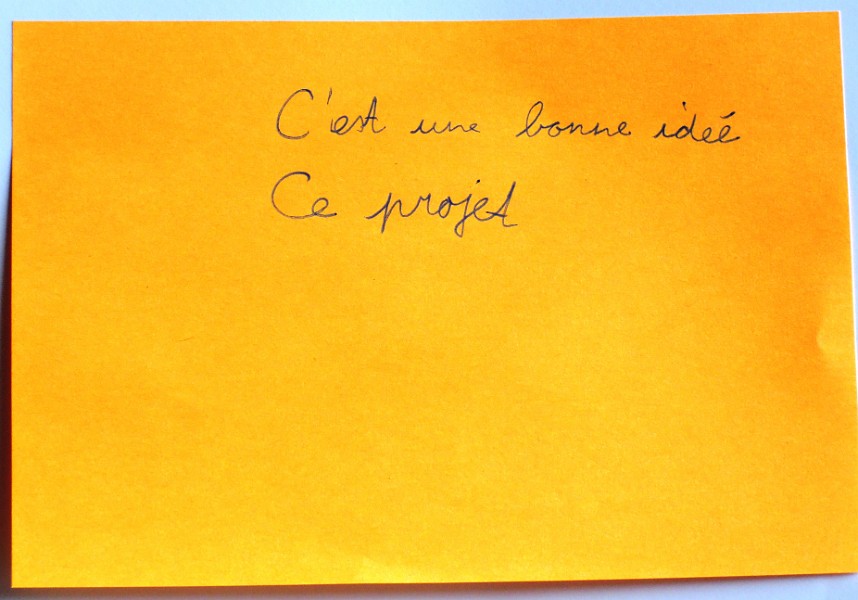 C'est une bonne ideé
Ce projet